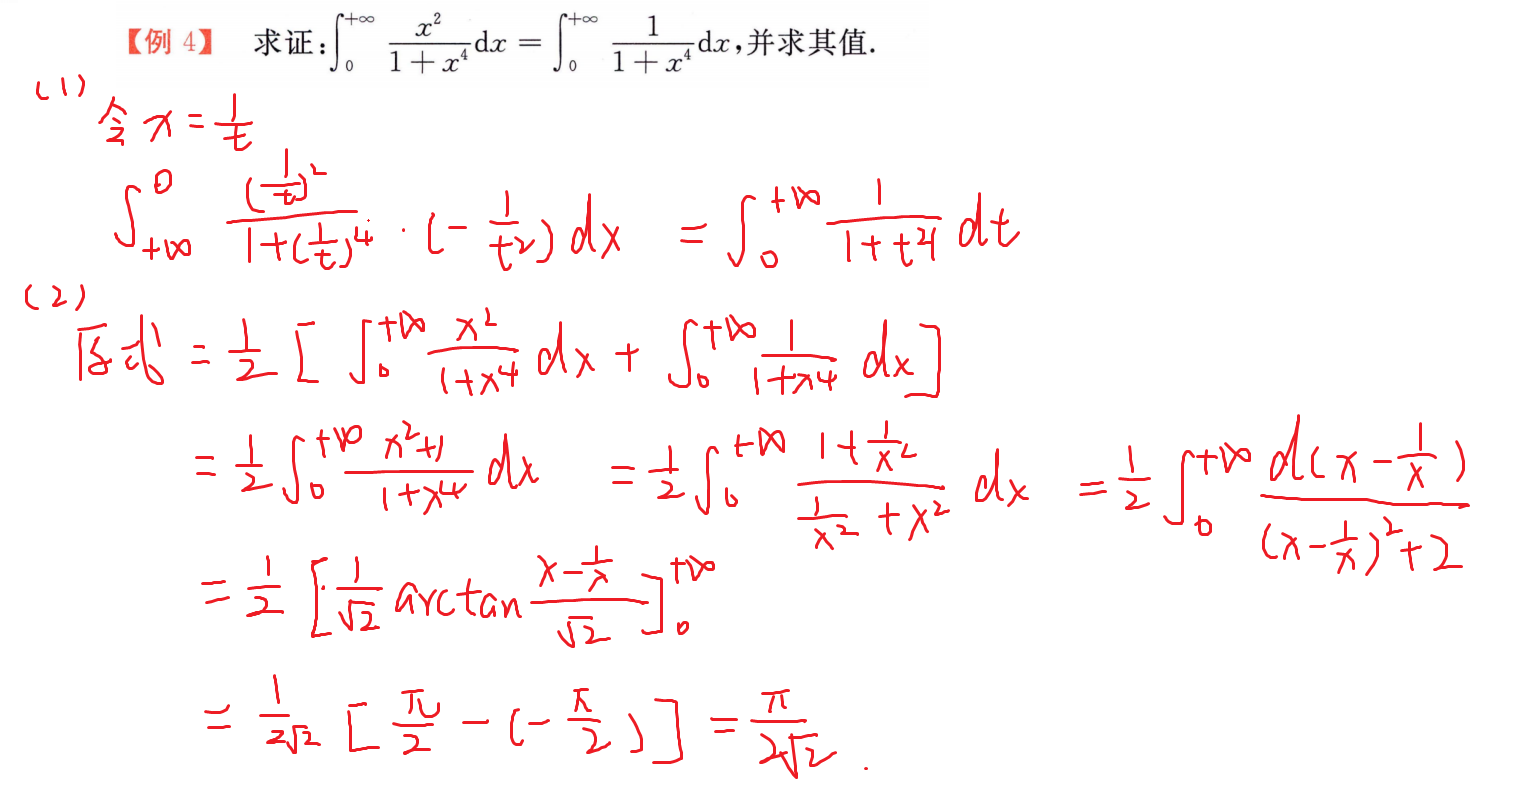 【例 4】 求证:∫₀^{+∞} x²/(1+x⁴) dx = ∫₀^{+∞} 1/(1+x⁴) dx,并求其值.
(1)
令 x = 1/t
∫_{+∞}^{0} (1/t)²/(1+(1/t)⁴) · (-1/t²) dx = ∫₀^{+∞} 1/(1+t⁴) dt
(2)
原式 = 1/2 [ ∫₀^{+∞} x²/(1+x⁴) dx + ∫₀^{+∞} 1/(1+x⁴) dx ]
= 1/2 ∫₀^{+∞} (x²+1)/(1+x⁴) dx = 1/2 ∫₀^{+∞} (1+1/x²)/(1/x²+x²) dx = 1/2 ∫₀^{+∞} d(x-1/x)/((x-1/x)²+2)
= 1/2 [ 1/√2 arctan (x-1/x)/√2 ]₀^{+∞}
= 1/(2√2) [ π/2 - (-π/2) ] = π/(2√2) .